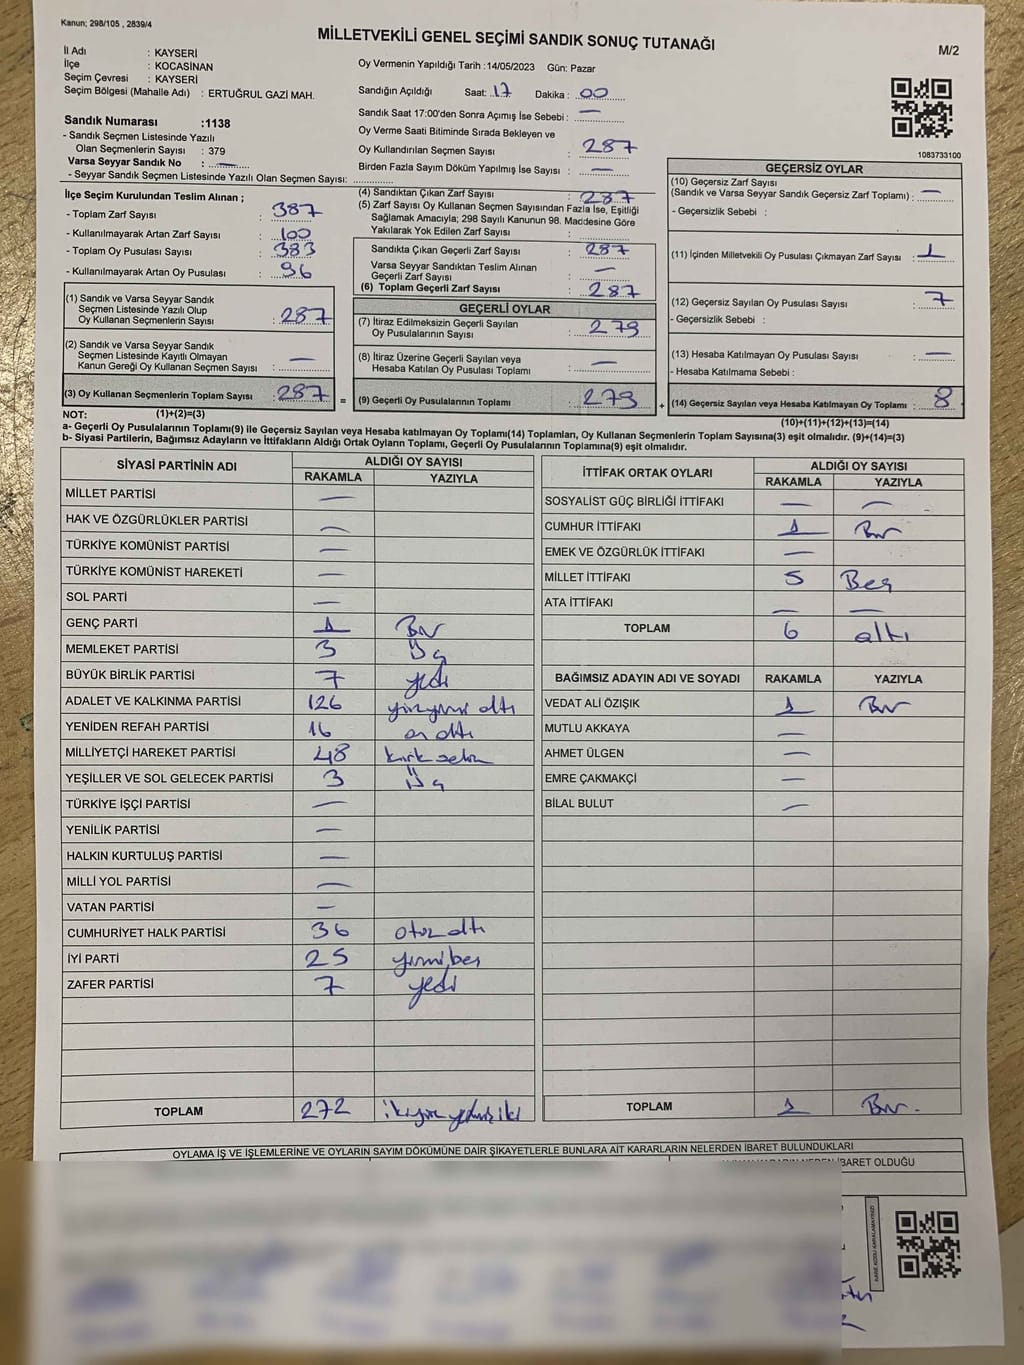 Kanun; 298/105 , 2839/4
MİLLETVEKİLİ GENEL SEÇİMİ SANDIK SONUÇ TUTANAĞI
M/2
İl Adı : KAYSERİ
İlçe : KOCASİNAN
Seçim Çevresi : KAYSERİ
Seçim Bölgesi (Mahalle Adı) : ERTUĞRUL GAZİ MAH.
Sandık Numarası :1138
- Sandık Seçmen Listesinde Yazılı
Olan Seçmenlerin Sayısı : 379
Varsa Seyyar Sandık No : —
- Seyyar Sandık Seçmen Listesinde Yazılı Olan Seçmen Sayısı:
Oy Vermenin Yapıldığı Tarih :14/05/2023 Gün: Pazar
Sandığın Açıldığı Saat: 17 Dakika : 00
Sandık Saat 17:00'den Sonra Açımış İse Sebebi : —
Oy Verme Saati Bitiminde Sırada Bekleyen ve
Oy Kullandırılan Seçmen Sayısı : 287
Birden Fazla Sayım Döküm Yapılmış İse Sayısı : —
1083733100
İlçe Seçim Kurulundan Teslim Alınan ;
- Toplam Zarf Sayısı : 387
- Kullanılmayarak Artan Zarf Sayısı : 100
- Toplam Oy Pusulası Sayısı : 383
- Kullanılmayarak Artan Oy Pusulası : 96
(1) Sandık ve Varsa Seyyar Sandık
Seçmen Listesinde Yazılı Olup
Oy Kullanan Seçmenlerin Sayısı : 287
(2) Sandık ve Varsa Seyyar Sandık
Seçmen Listesinde Kayıtlı Olmayan
Kanun Gereği Oy Kullanan Seçmen Sayısı : —
(3) Oy Kullanan Seçmenlerin Toplam Sayısı : 287 =
(4) Sandıktan Çıkan Zarf Sayısı : 287
(5) Zarf Sayısı Oy Kullanan Seçmen Sayısından Fazla İse, Eşitliği
Sağlamak Amacıyla; 298 Sayılı Kanunun 98. Maddesine Göre
Yakılarak Yok Edilen Zarf Sayısı :
Sandıkta Çıkan Geçerli Zarf Sayısı : 287
Varsa Seyyar Sandıktan Teslim Alınan
Geçerli Zarf Sayısı : —
(6) Toplam Geçerli Zarf Sayısı : 287
GEÇERLİ OYLAR
(7) İtiraz Edilmeksizin Geçerli Sayılan
Oy Pusulalarının Sayısı : 279
(8) İtiraz Üzerine Geçerli Sayılan veya
Hesaba Katılan Oy Pusulası Toplamı : —
(9) Geçerli Oy Pusulalarının Toplamı : 279 +
GEÇERSİZ OYLAR
(10) Geçersiz Zarf Sayısı
(Sandık ve Varsa Seyyar Sandık Geçersiz Zarf Toplamı) : —
- Geçersizlik Sebebi :
(11) İçinden Milletvekili Oy Pusulası Çıkmayan Zarf Sayısı : 1
(12) Geçersiz Sayılan Oy Pusulası Sayısı : 7
- Geçersizlik Sebebi :
(13) Hesaba Katılmayan Oy Pusulası Sayısı : —
- Hesaba Katılmama Sebebi :
(14) Geçersiz Sayılan veya Hesaba Katılmayan Oy Toplamı : 8
NOT: (1)+(2)=(3)
(10)+(11)+(12)+(13)=(14)
a- Geçerli Oy Pusulalarının Toplamı(9) ile Geçersiz Sayılan veya Hesaba katılmayan Oy Toplamı(14) Toplamları, Oy Kullanan Seçmenlerin Toplam Sayısına(3) eşit olmalıdır. (9)+(14)=(3)
b- Siyasi Partilerin, Bağımsız Adayların ve İttifakların Aldığı Ortak Oyların Toplamı, Geçerli Oy Pusulalarının Toplamına(9) eşit olmalıdır.
SİYASİ PARTİNİN ADI ALDIĞI OY SAYISI
RAKAMLA YAZIYLA
MİLLET PARTİSİ —
HAK VE ÖZGÜRLÜKLER PARTİSİ —
TÜRKİYE KOMÜNİST PARTİSİ —
TÜRKİYE KOMÜNİST HAREKETİ —
SOL PARTİ —
GENÇ PARTİ 1 Bir
MEMLEKET PARTİSİ 3 Üç
BÜYÜK BİRLİK PARTİSİ 7 yedi
ADALET VE KALKINMA PARTİSİ 126 yüzyirmi altı
YENİDEN REFAH PARTİSİ 16 on altı
MİLLİYETÇİ HAREKET PARTİSİ 48 kırk sekiz
YEŞİLLER VE SOL GELECEK PARTİSİ 3 Üç
TÜRKİYE İŞÇİ PARTİSİ —
YENİLİK PARTİSİ —
HALKIN KURTULUŞ PARTİSİ —
MİLLİ YOL PARTİSİ —
VATAN PARTİSİ —
CUMHURİYET HALK PARTİSİ 36 otuz altı
İYİ PARTİ 25 yirmi beş
ZAFER PARTİSİ 7 yedi
TOPLAM 272 ikiyüz yetmiş iki
İTTİFAK ORTAK OYLARI ALDIĞI OY SAYISI
RAKAMLA YAZIYLA
SOSYALİST GÜÇ BİRLİĞİ İTTİFAKI — —
CUMHUR İTTİFAKI 1 Bir
EMEK VE ÖZGÜRLÜK İTTİFAKI —
MİLLET İTTİFAKI 5 Beş
ATA İTTİFAKI — —
TOPLAM 6 altı
BAĞIMSIZ ADAYIN ADI VE SOYADI RAKAMLA YAZIYLA
VEDAT ALİ ÖZIŞIK 1 Bir
MUTLU AKKAYA —
AHMET ÜLGEN —
EMRE ÇAKMAKÇİ —
BİLAL BULUT —
TOPLAM 1 Bir.
OYLAMA İŞ VE İŞLEMLERİNE VE OYLARIN SAYIM DÖKÜMÜNE DAİR ŞİKAYETLERLE BUNLARA AİT KARARLARIN NELERDEN İBARET BULUNDUKLARI
İBARET OLDUĞU